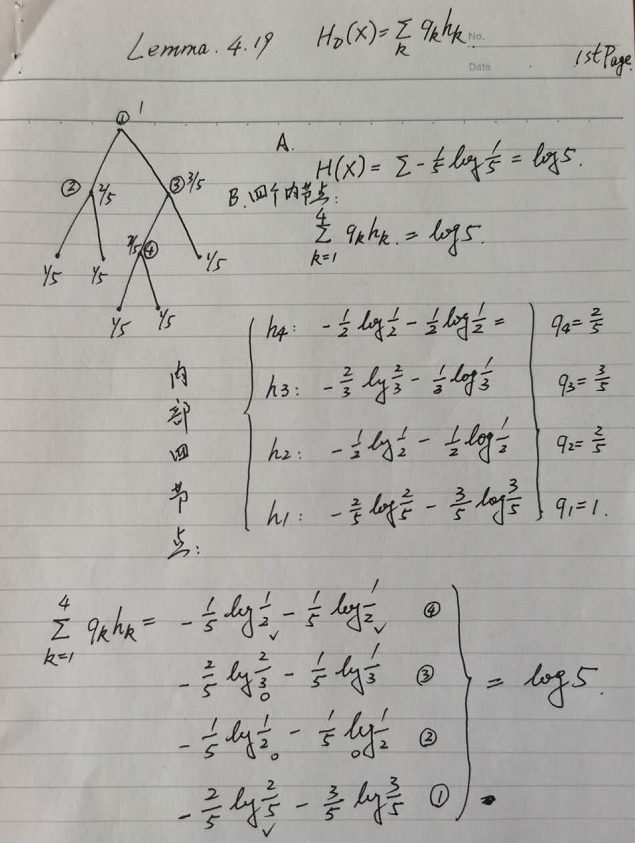 Lemma. 4.19 H_D(X) = ∑_k q_k h_k
No.
Date
1st Page.
① 1
② 2/5 ③ 3/5
2/5 ④
1/5 1/5 1/5
1/5 1/5
A. H(X) = ∑ - 1/5 log 1/5 = log 5.
B. 四个内节点:
∑_{k=1}^{4} q_k h_k = log 5.
内部四节点:
h4: - 1/2 log 1/2 - 1/2 log 1/2 = q4 = 2/5
h3: - 2/3 log 2/3 - 1/3 log 1/3 q3 = 3/5
h2: - 1/2 log 1/2 - 1/2 log 1/2 q2 = 2/5
h1: - 2/5 log 2/5 - 3/5 log 3/5 q1 = 1.
∑_{k=1}^{4} q_k h_k = - 1/5 log 1/2 - 1/5 log 1/2 ④
- 2/5 log 2/3 - 1/5 log 1/3 ③ = log 5.
- 1/5 log 1/2 - 1/5 log 1/2 ②
- 2/5 log 2/5 - 3/5 log 3/5 ①